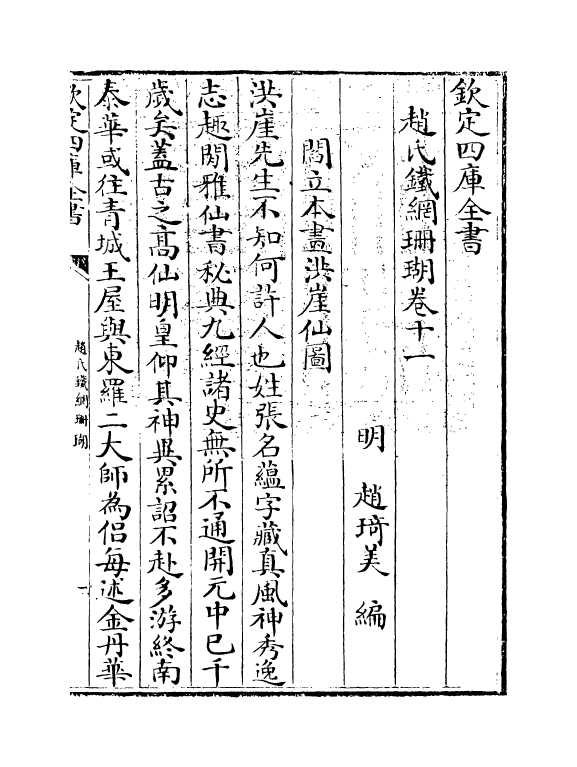 欽定四庫全書
趙氏鐵網珊瑚卷十一
明 趙琦美 編
閻立本畫洪崖仙圖
洪崖先生不知何許人也姓張名蘊字藏真風神秀逸
志趣閒雅仙書秘典九經諸史無所不通開元中已千
歲矣蓋古之高仙明皇仰其神異累詔不赴多游終南
泰華或往青城王屋與東羅二大師為侶每述金丹華
欽定四庫全書
趙氏鐵網珊瑚
一